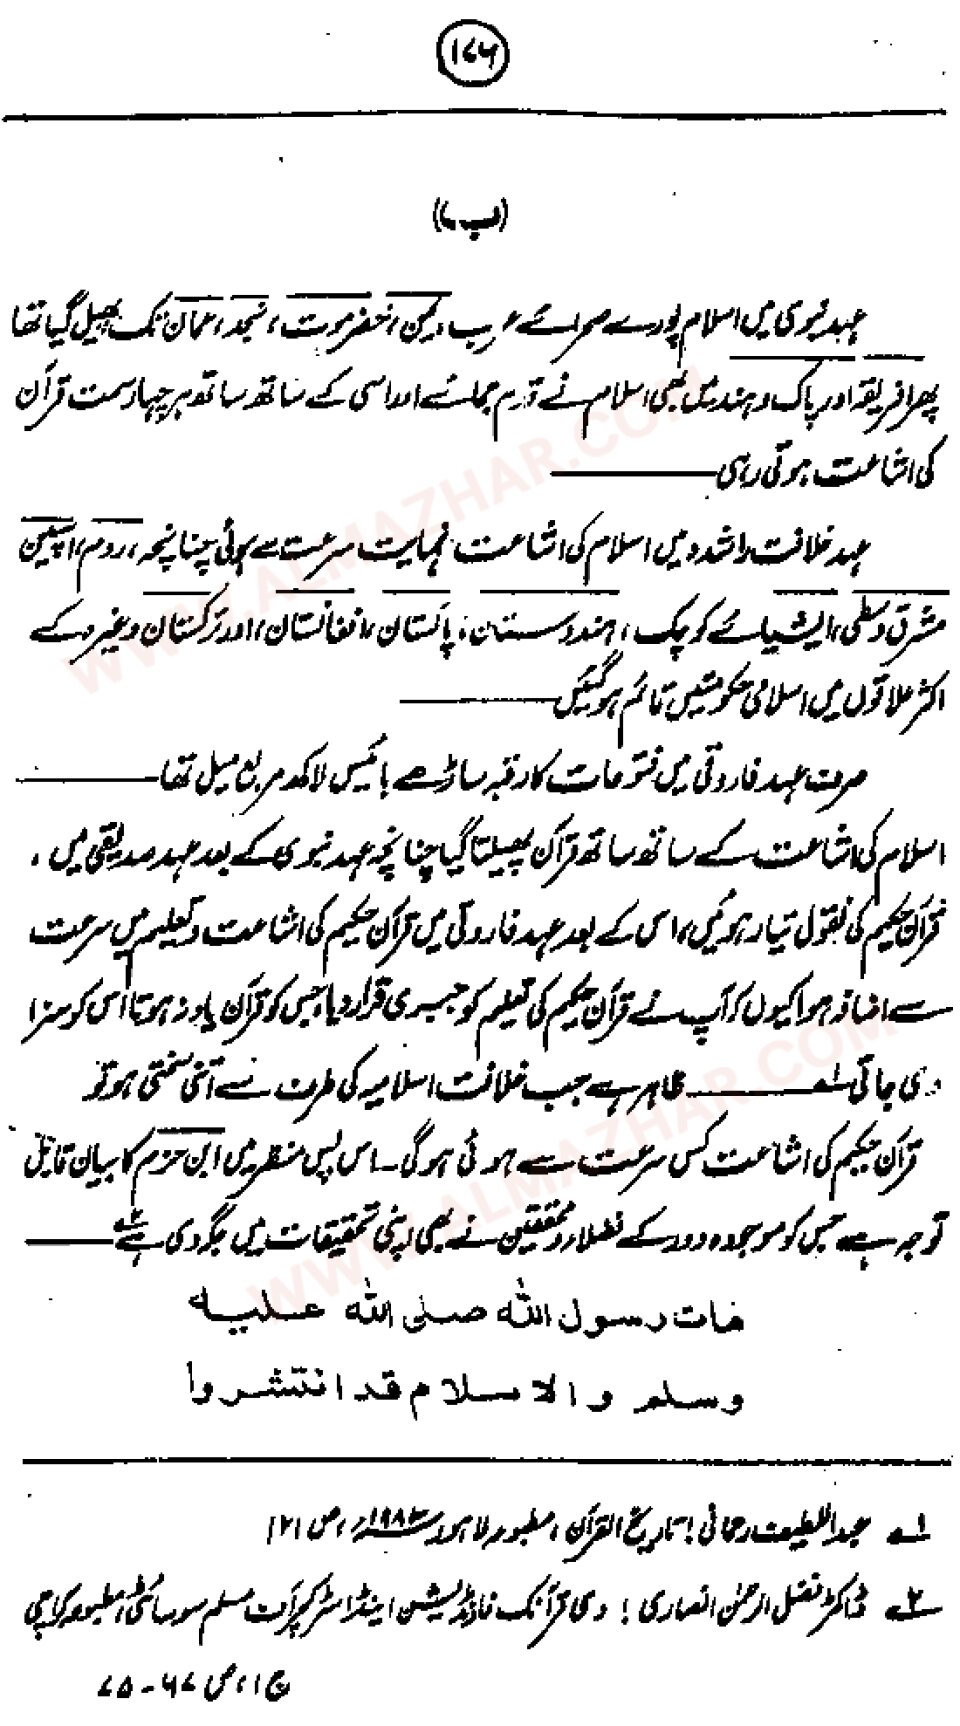 ۱۷۶
(ب)
عہد نبوی میں اسلام پورے صحرائے عرب، یمن، حضرموت، نجد، عمان تک پھیل گیا تھا
پھر افریقہ اور پاک و ہند میں بھی اسلام نے قدم جمائے اور اسی کے ساتھ ساتھ ہر چہار سمت قرآن
کی اشاعت ہوتی رہی ———
عہد خلافت راشدہ میں اسلام کی اشاعت نہایت سرعت سے ہوئی چنانچہ، روم، اسپین
مشرق وسطی، ایشیائے کوچک، ہندوستان، پاکستان، افغانستان، اور ترکستان وغیرہ کے
اکثر علاقوں میں اسلامی حکومتیں قائم ہوگئیں ———
صرف عہد فاروقی میں فتوحات کا رقبہ ساڑھے بائیس لاکھ مربع میل تھا ———
اسلام کی اشاعت کے ساتھ ساتھ قرآن پھیلتا گیا چنانچہ عہد نبوی کے بعد عہد صدیقی میں،
قرآن حکیم کی نقول تیار ہوئیں، اس کے بعد عہد فاروقی میں قرآن حکیم کی اشاعت و تعلیم میں سرعت
سے اضافہ ہوا کیوں کہ آپ نے قرآن حکیم کی تعلیم کو جبری قرار دیا، جس کو قرآن یاد نہ ہوتا اس کو سزا
دی جاتی ۱؎ ——— ظاہر ہے جب خلافت اسلامیہ کی طرف سے اتنی سختی ہو تو
قرآن حکیم کی اشاعت کس سرعت سے ہوئی ہوگی۔ اس پس منظر میں ابن حزم کا بیان قابل
توجہ ہے جس کو موجودہ دور کے فضلاء و محققین نے بھی اپنی تحقیقات میں جگہ دی ہے ۲؎ ———
مات رسول اللہ صلی اللہ علیہ
وسلم والاسلام قد انتشروا
۱؎ عبداللطیف رحمانی: تاریخ القرآن، مطبوعہ لاہور ۱۹۸۳ء، ص ۱۲۱
۲؎ ڈاکٹر فضل الرحمٰن انصاری: دی قرآنک فاؤنڈیشن اینڈ اسٹرکچر آف مسلم سوسائٹی، مطبوعہ کراچی
ج ۱، ص ۶۷-۷۵
WWW.ALMAZHAR.COM
WWW.ALMAZHAR.COM